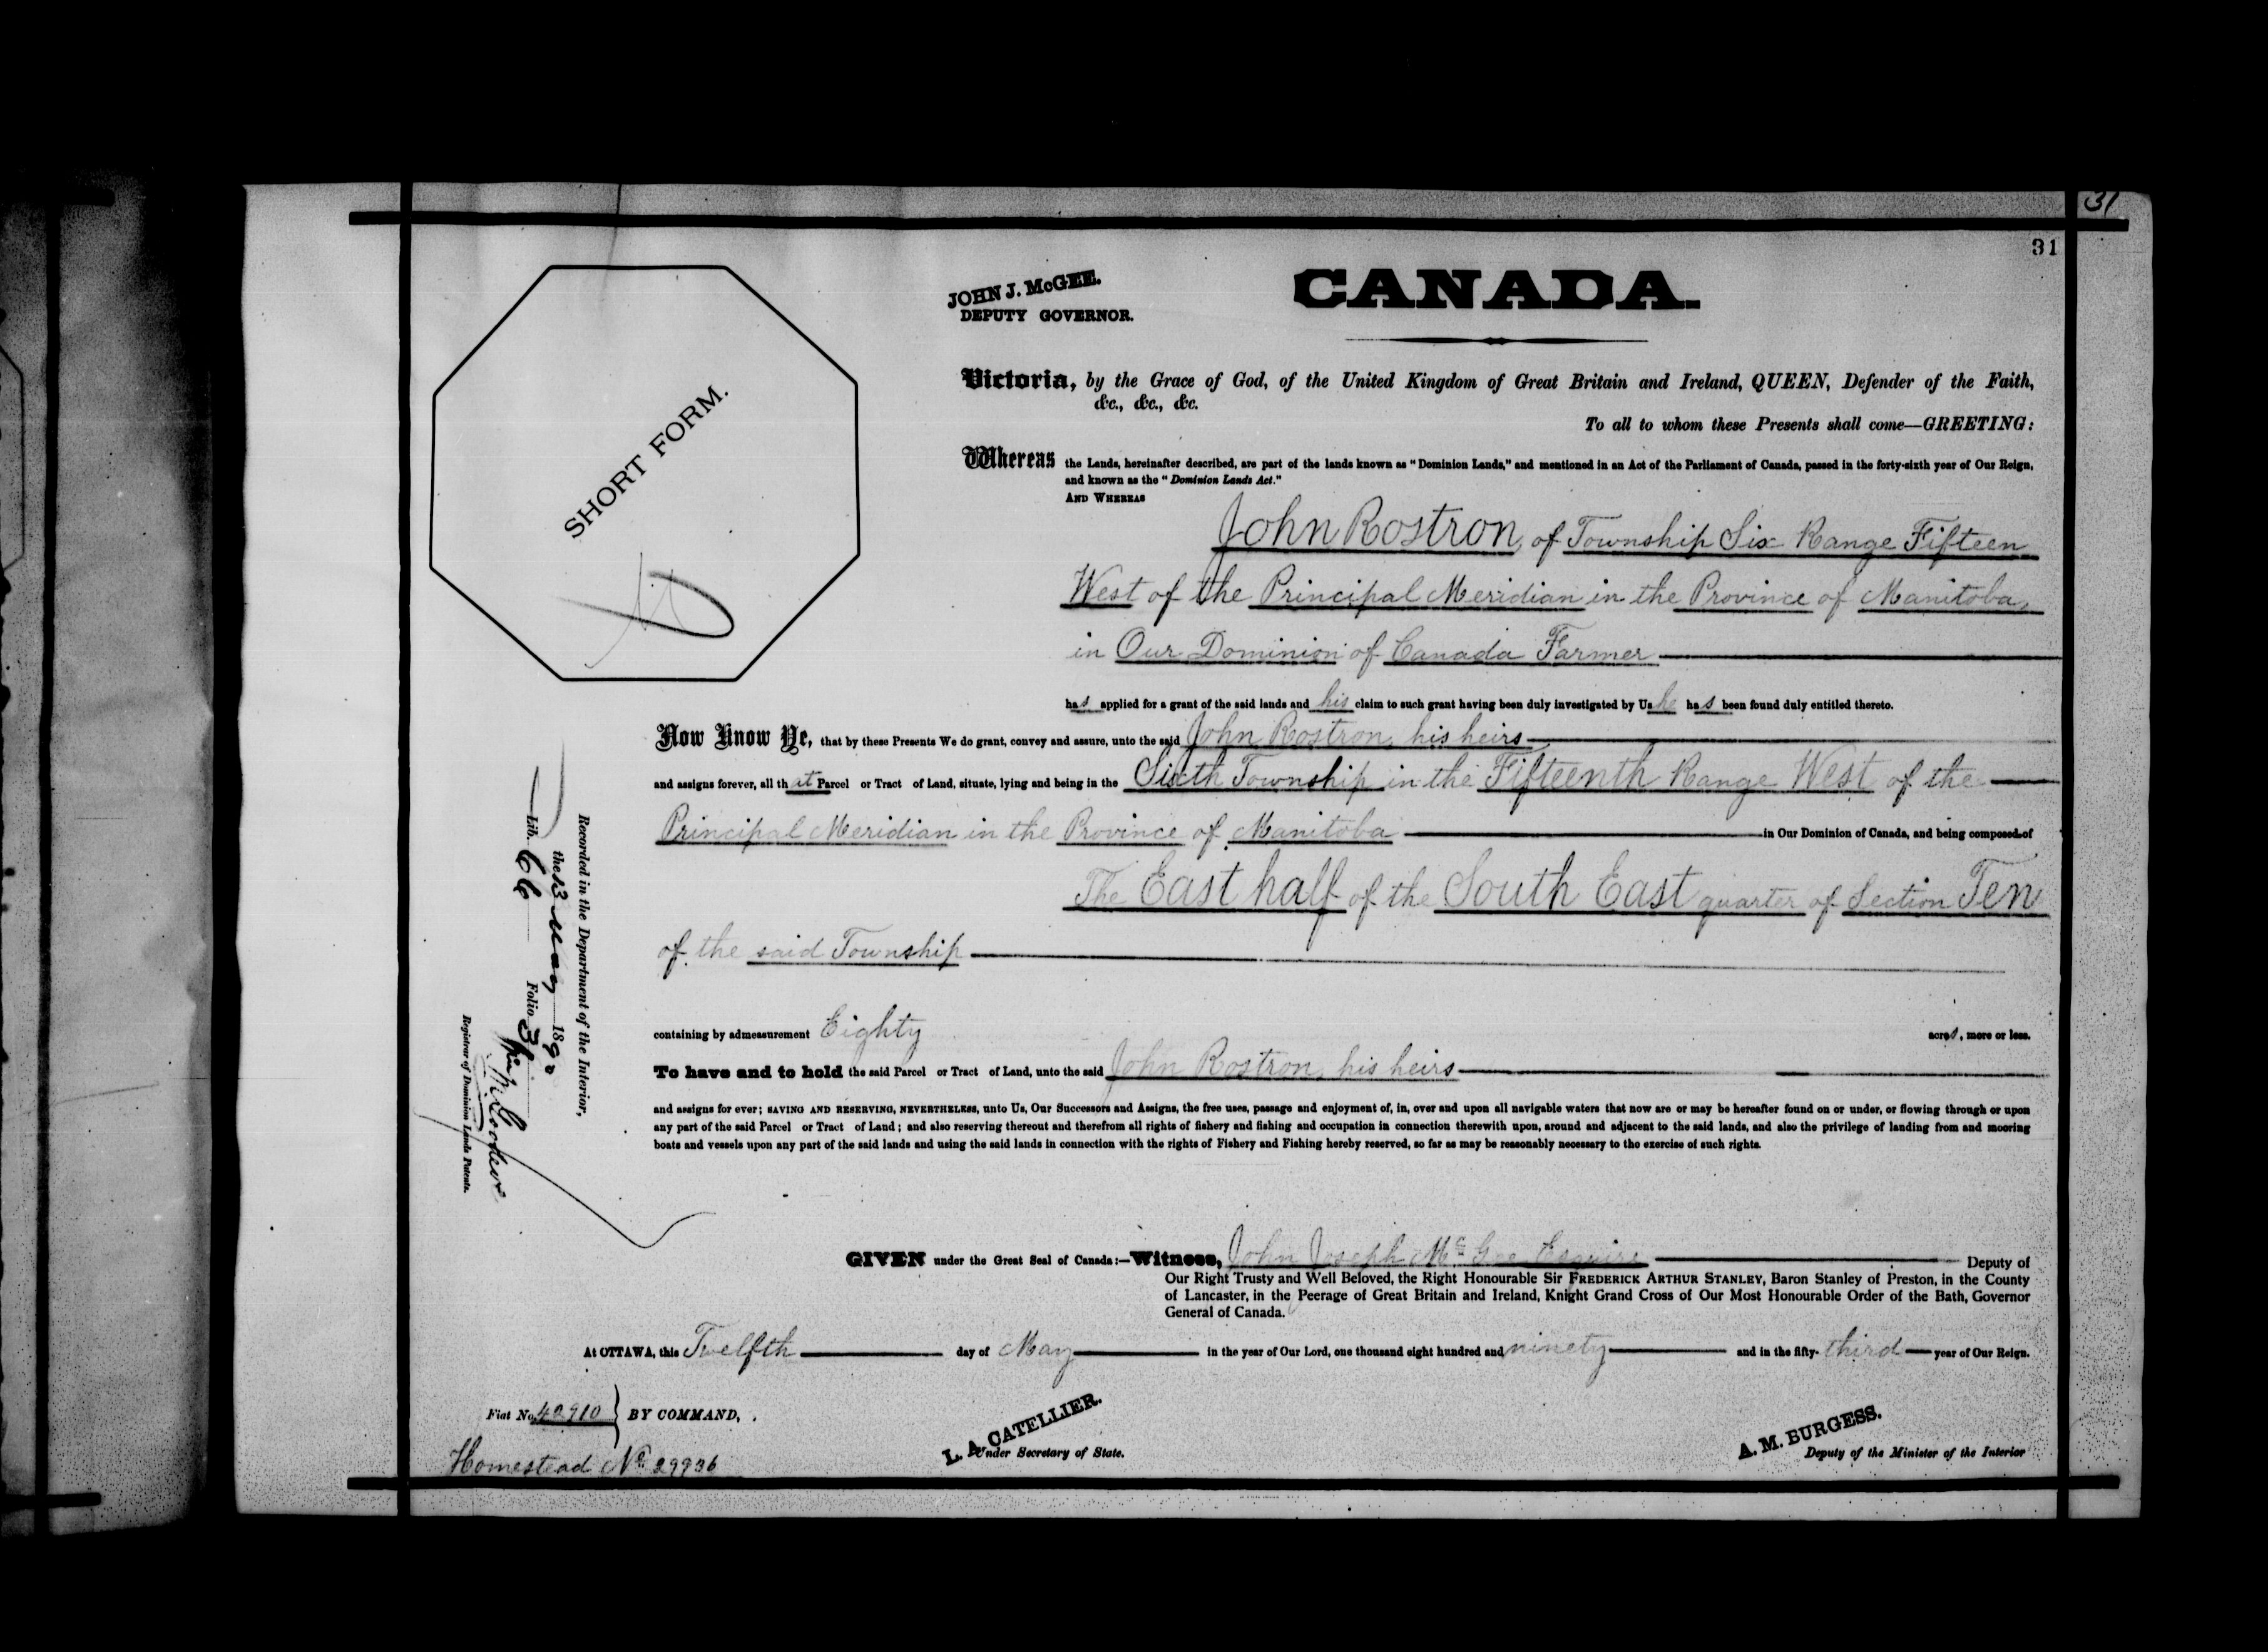 31
31
JOHN J. McGEE.
DEPUTY GOVERNOR.
CANADA.
SHORT FORM.
Victoria, by the Grace of God, of the United Kingdom of Great Britain and Ireland, QUEEN, Defender of the Faith,
&c., &c., &c.
To all to whom these Presents shall come—GREETING:
Whereas the Lands, hereinafter described, are part of the lands known as "Dominion Lands," and mentioned in an Act of the Parliament of Canada, passed in the forty-sixth year of Our Reign,
and known as the "Dominion Lands Act."
AND WHEREAS
John Rostron, of Township Six Range Fifteen
West of the Principal Meridian in the Province of Manitoba,
in Our Dominion of Canada Farmer
has applied for a grant of the said lands and his claim to such grant having been duly investigated by Us he has been found duly entitled thereto.
Now Know Ye, that by these Presents We do grant, convey and assure, unto the said John Rostron, his heirs
and assigns forever, all that Parcel or Tract of Land, situate, lying and being in the Sixth Township in the Fifteenth Range West of the
Principal Meridian in the Province of Manitoba in Our Dominion of Canada, and being composed of
The East half of the South East quarter of Section Ten
of the said Township
containing by admeasurement Eighty acres, more or less.
To have and to hold the said Parcel or Tract of Land, unto the said John Rostron, his heirs
and assigns for ever; SAVING AND RESERVING, NEVERTHELESS, unto Us, Our Successors and Assigns, the free uses, passage and enjoyment of, in, over and upon all navigable waters that now are or may be hereafter found on or under, or flowing through or upon
any part of the said Parcel or Tract of Land; and also reserving thereout and therefrom all rights of fishery and fishing and occupation in connection therewith upon, around and adjacent to the said lands, and also the privilege of landing from and mooring
boats and vessels upon any part of the said lands and using the said lands in connection with the rights of Fishery and Fishing hereby reserved, so far as may be reasonably necessary to the exercise of such rights.
Recorded in the Department of the Interior,
the 13 May 1890
Lib. 66 Folio 31
Registrar of Dominion Lands Patents.
GIVEN under the Great Seal of Canada:—Witness, John Joseph McGee Esquire Deputy of
Our Right Trusty and Well Beloved, the Right Honourable Sir FREDERICK ARTHUR STANLEY, Baron Stanley of Preston, in the County
of Lancaster, in the Peerage of Great Britain and Ireland, Knight Grand Cross of Our Most Honourable Order of the Bath, Governor
General of Canada.
At OTTAWA, this Twelfth day of May in the year of Our Lord, one thousand eight hundred and ninety and in the fifty-third year of Our Reign.
Fiat No. 42910 } BY COMMAND,
L. A. CATELLIER.
Under Secretary of State.
A. M. BURGESS.
Deputy of the Minister of the Interior
Homestead No. 29936